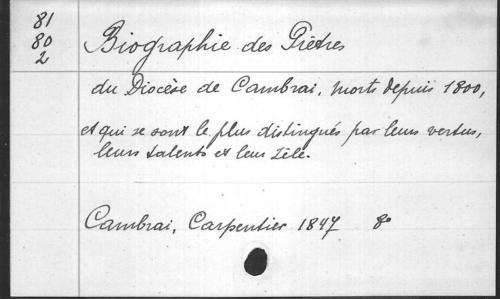 81
80
2
Biographie des Prêtres
du Diocèse de Cambrai, morts depuis 1800,
et qui se sont le plus distingués par leurs vertus,
leurs talents et leur zèle.
Cambrai, Carpentier 1847 8°